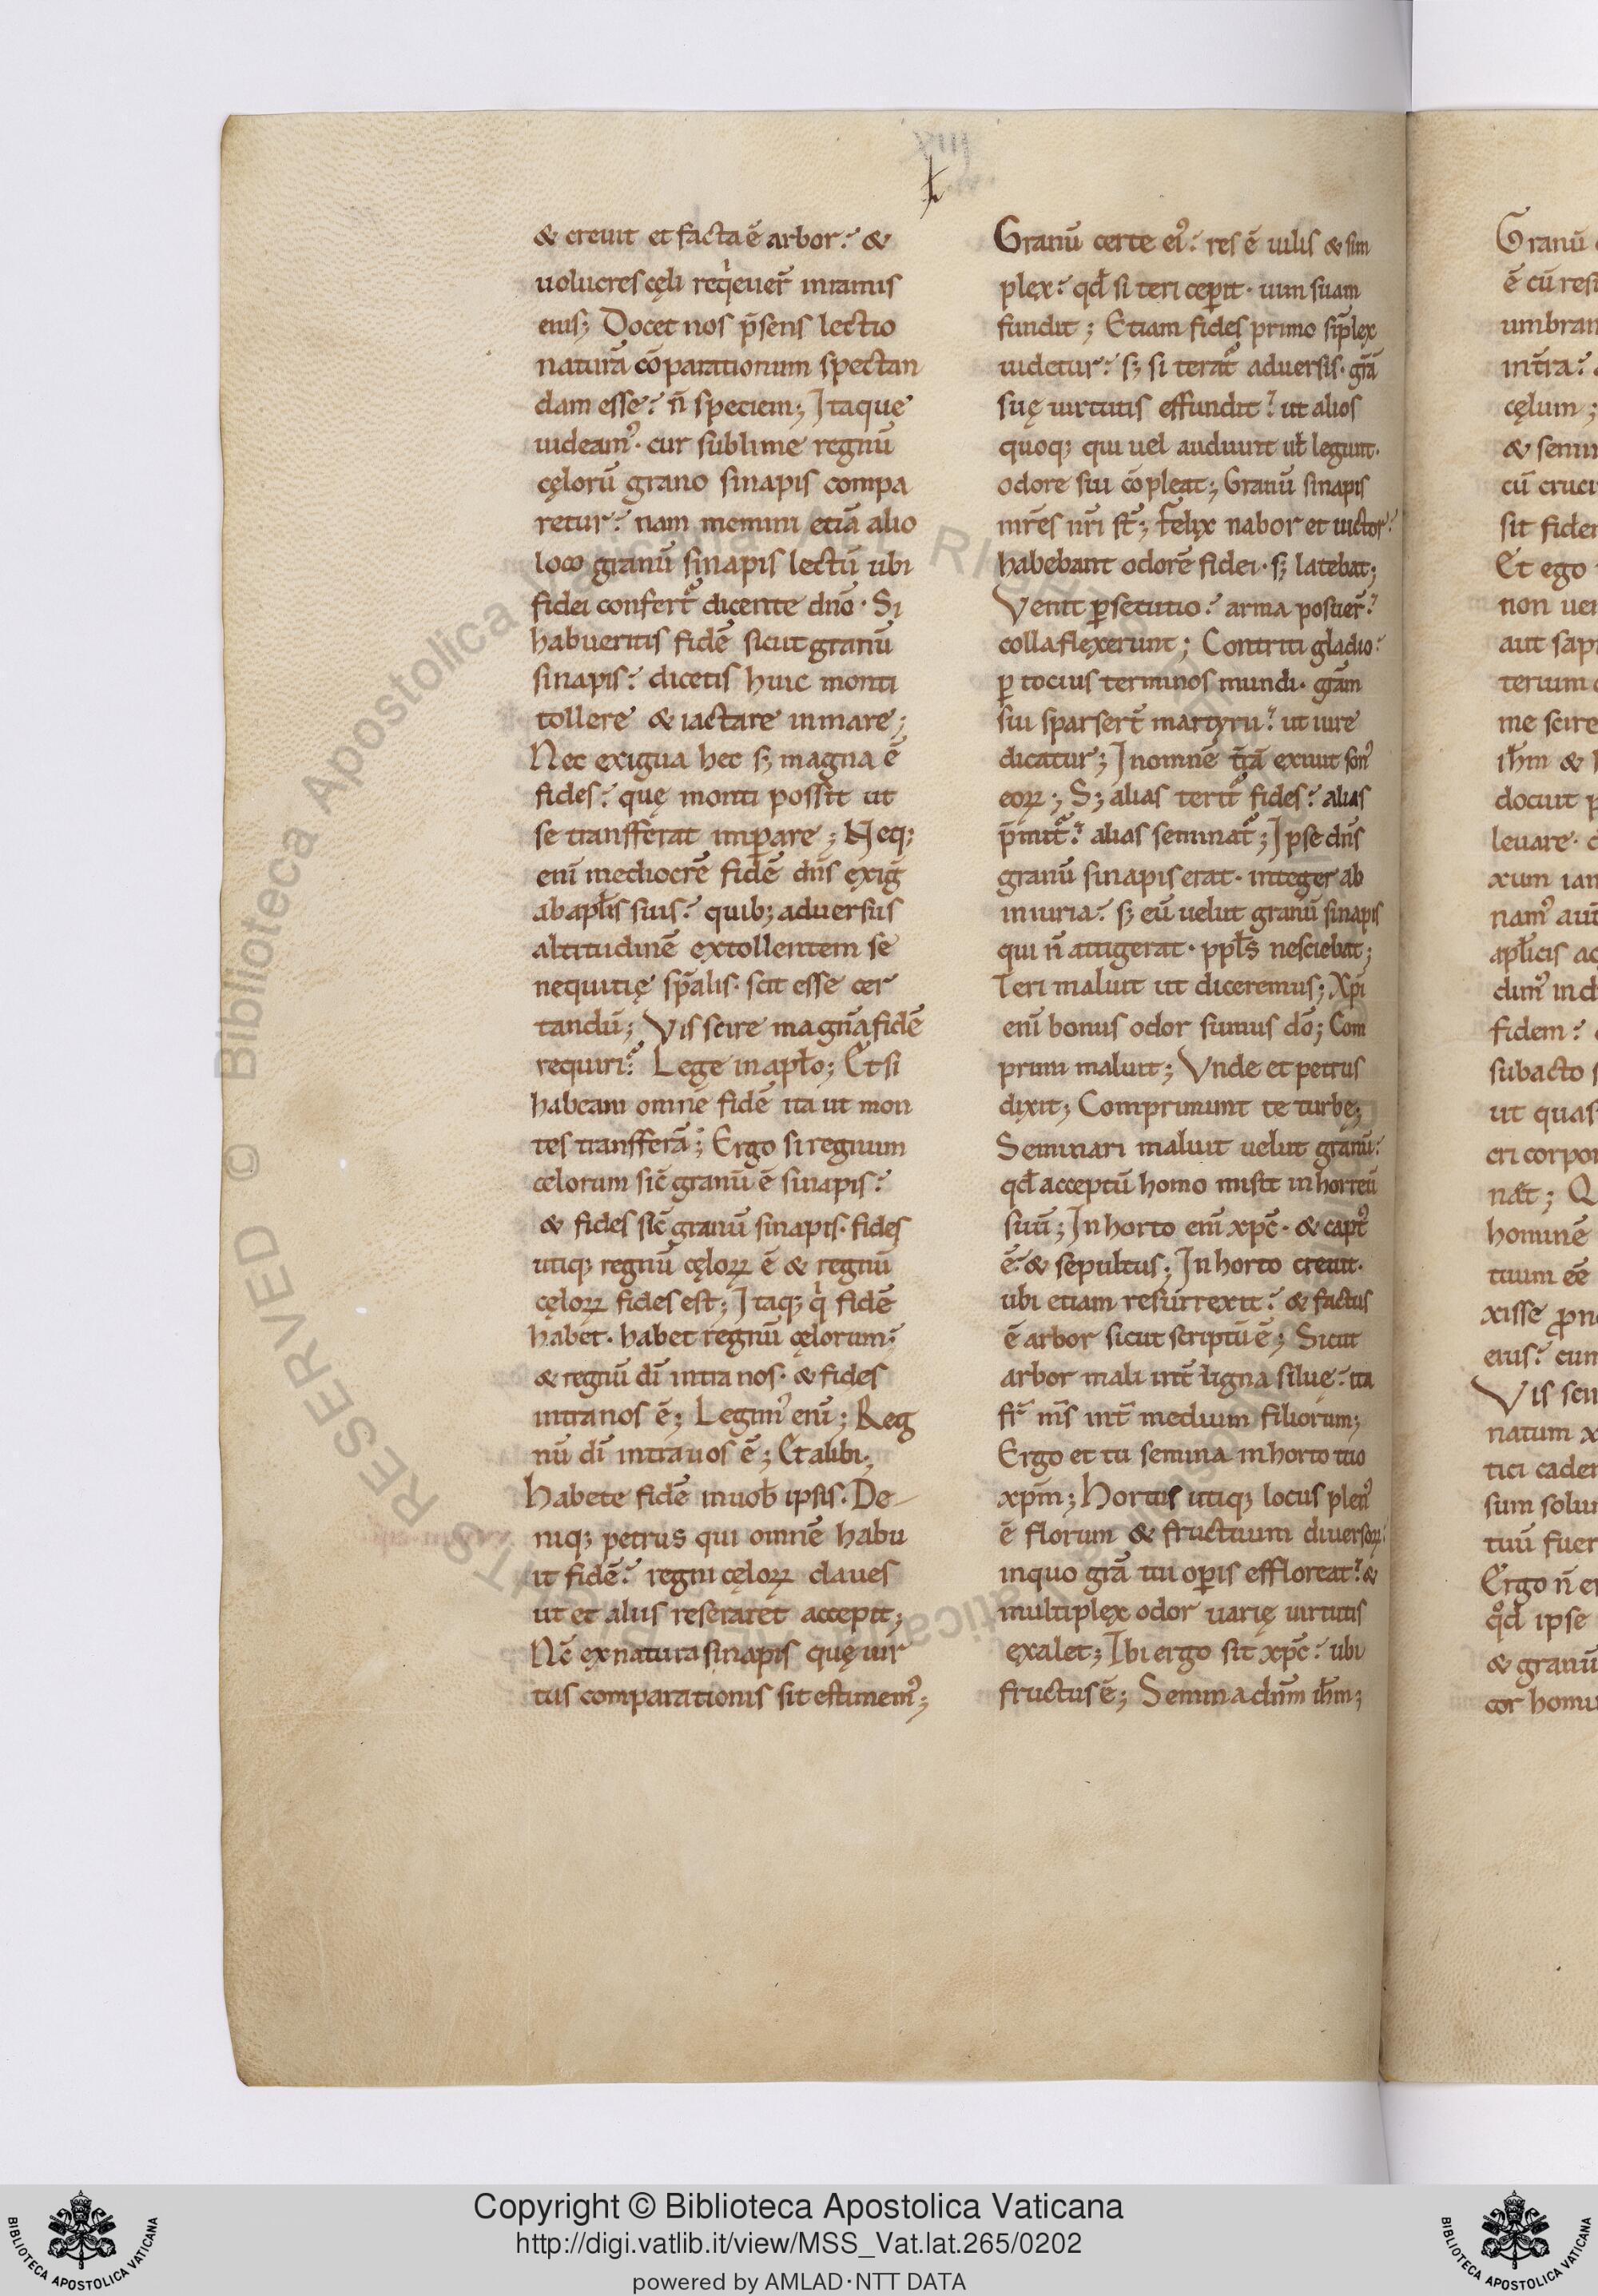 & creuit et facta ē arbor? &
uolucres cęli reqͥeuer̄ inramis
eius; Docet nos p̄sens lectio
naturā cōparationum spectan
dam esse? n̄ speciem; Itaque
uideam᷒ · cur sublime regnū
cęlorū grano sinapis compa
retur? nam memini etiā alio
loco granū sinapis lectū ubi
fidei confert᷒ dicente dn̄o · Si
habueritis fidē sicut granū
sinapis? dicetis huic monti
tollere & iactare inmare;
Nec exigua hec sꝫ magna ē
fides? quę monti possit ut
se transferat imꝑare; Neqꝫ
eni̅ mediocrē fidē dn̄s exig̅
ab apl̄is suis? quibꝫ aduersus
altitudinē extollentem se
nequitię sp̄alis · scit esse cer
tandū; Vis scire magnā fidē
requiri? Lege in apl̄o; Et si
habeam omnē fidē ita ut mon
tes transferā; Ergo si regnum
celorum sic̄ granū ē sinapis?
& fides sic̄ granū sinapis · fides
utiqꝫ regnū cęloꝝ ē & regnū
cęloꝝ fides est; Itaqꝫ qͥ fidē
habet · habet regnū cęlorum?
& regnū dī intra nos · & fides
intra nos ē; Legim᷒ eni̅; Reg
nū dī intra uos ē; Et alibi;
Habete fidē in uob̄ ipsis · De-
niqꝫ petrus qui omnē habu
it fidē? regni cęloꝝ claues
ut et aliis reseraret accepit;
Nc̄ ex natura sinapis quę uir
tus comparationis sit estimem᷒;
Granū certe ei᷒? res ē uilis & sim
plex? qd̄ si teri ceꝑit · uim suam
fundit; Etiam fides primo sīplex
uidetur? sꝫ si terat᷒ aduersis · gr̄ā
suę uirtutis effundit? ut alios
quoqꝫ qui uel audiunt ul̄ legunt ·
odore sui cōpleat; Granū sinapis
mr̄es nr̄i st̄; felix nabor et uictor?
habebant odorē fidei · sꝫ latebat;
Venit ꝑsecutio? arma posuer̄?
colla flexerunt; Contriti gladio?
ꝑ tocius terminos mundi · gr̄am
sui sparser̄t martyrii? ut iure
dicatur; In omnē tr̄ā exiuit son᷒
eoꝝ; Sꝫ alias terit᷒ fides? alias
p̄mit᷒? alias seminat᷒; Ipse dn̄s
granū sinapis erat · integer ab
iniuria? sꝫ eū uelut granū sinapis
qui n̄ attigerat · ppl̄s nesciebat;
Teri maluit ut diceremus; Xp̄i
eni̅ bonus odor sumus dō; Com
primi maluit; Vnde et petrus
dixit; Comprimunt te turbę;
Seminari maluit uelut granū?
qd̄ acceptū homo misit in hortū
suū; In horto eni̅ xp̄c · & capt᷒
ē? & sepultus; In horto creuit ·
ubi etiam resurrexit? & factus
ē arbor sicut scriptū ē; Sicut
arbor mali int̄ ligna siluę? ita
fr̄ ms̄ int̄ medium filiorum;
Ergo et tu semina in horto tuo
xp̄m; Hortus utiqꝫ locus plen᷒
ē florum & fructuum diuersoꝝ?
inquo gr̄ā tui oꝑis effloreat? &
multiplex odor uarię uirtutis
exalet; Ibi ergo sit xp̄c? ubi
fructus ē; Semina dn̄m ih̄m;
Granū
ē cū res
umbran
int̄ra?
cęlum;
& semi
cū cruci
sit fide
Et ego
non ue
aut sap
terium
me scire
ih̄m &
docuit p
leuare ·
xum ian
nam᷒ auū
apl̄icis ac
dim᷒ ind
fidem?
subacto s
ut quas
eri corpor
nat̄; Q
hominē
tuum eē
xisse ꝓn
eius? cum
Vis sci
natum x
tici cade
sum solu
tuū fuer
Ergo n̄ e
qd̄ ipse
& granū
cor homi
Copyright © Biblioteca Apostolica Vaticana
http://digi.vatlib.it/view/MSS_Vat.lat.265/0202
powered by AMLAD·NTT DATA
BIBLIOTECA APOSTOLICA VATICANA
BIBLIOTECA APOSTOLICA VATICANA